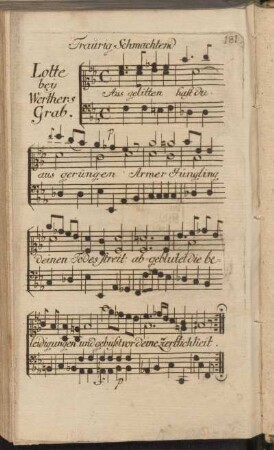 Traurig Schmachtend
Lotte
bey
Werthers
Grab.
Aus gelitten hast du
aus gerungen Armer Jüngling
deinen Todes streit ab geblutet die be
leidigungen und gebüßt vor deine Zertlichkeit.